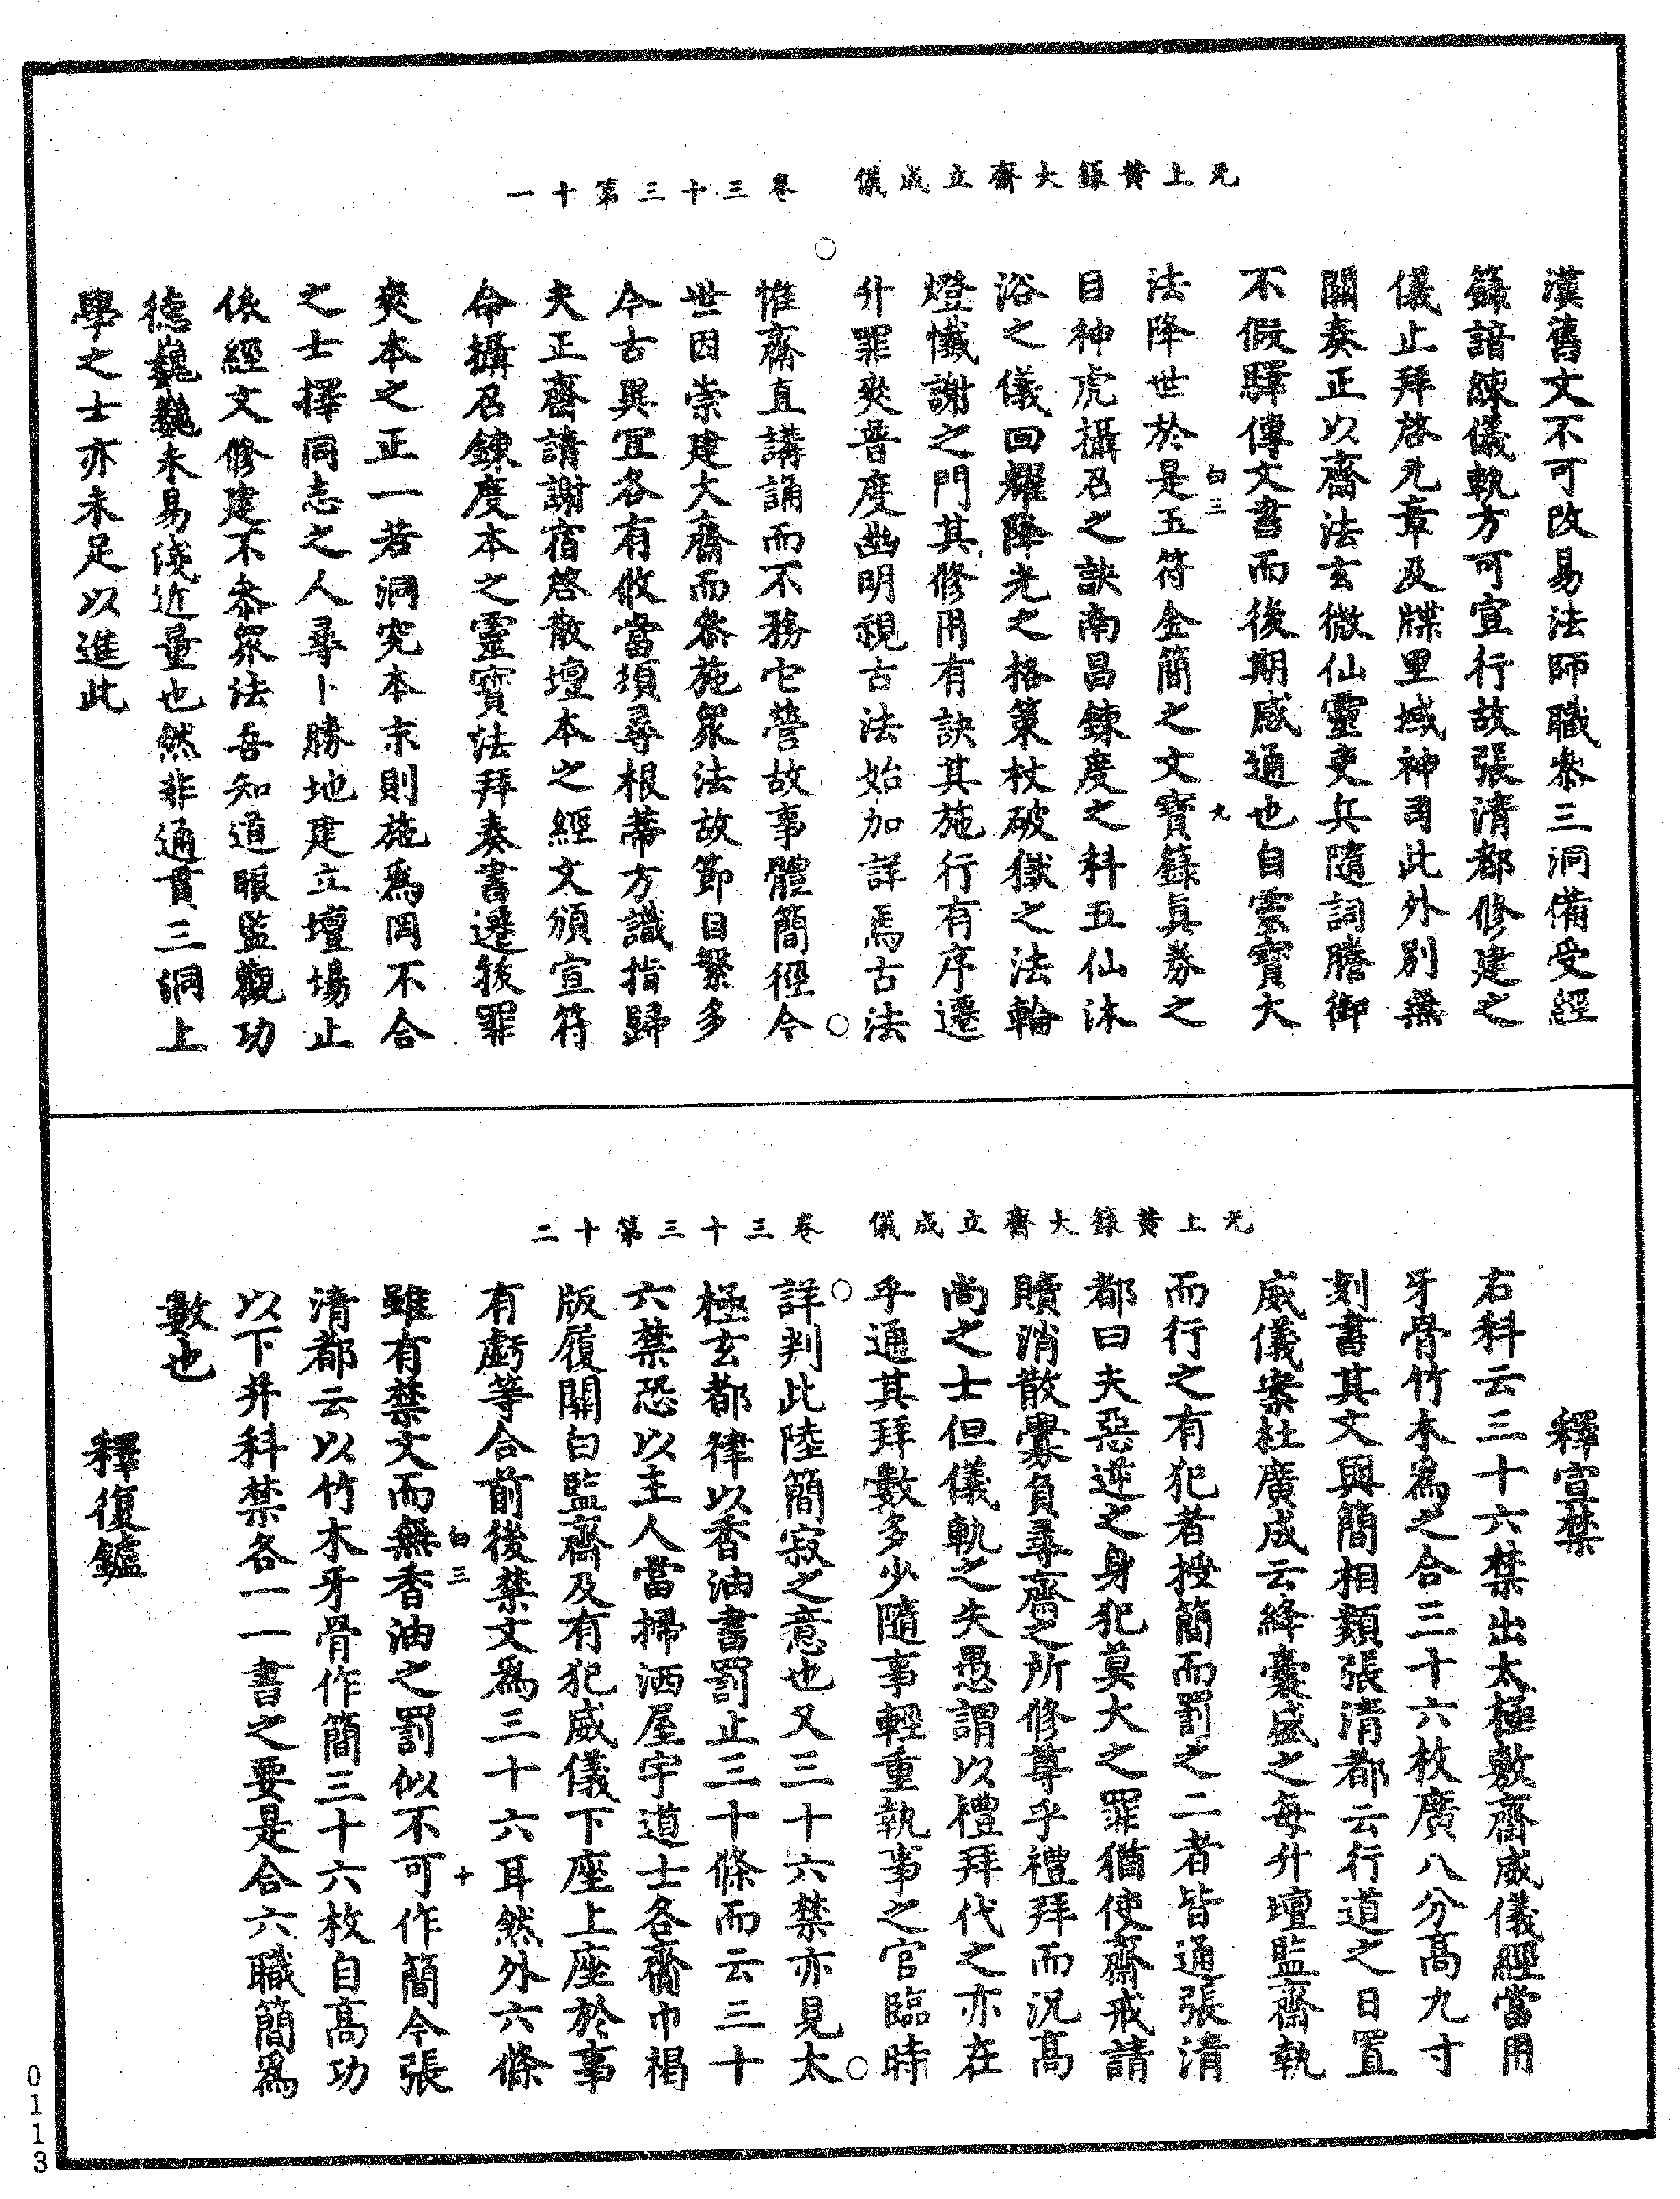 无上黃籙大齋立成儀　卷三十三第十一
漢舊文不可改易法師職叅三洞備受經
籙諳練儀軌方可宣行故張清都修建之
儀止拜啓九章及牒里域神司此外別無
關奏正以齋法玄微仙靈吏兵隨詞謄御
不假驛傳文書而後期感通也自靈寶大
白三　九
法降世於是玉符金簡之文寶籙眞券之
目神虎攝召之訣南昌鍊度之科五仙沐
浴之儀回耀降光之格策杖破獄之法輪
燈懺謝之門其修用有訣其施行有序遷
升罪爽普度幽明視古法始加詳焉古法
惟齋直講誦而不務它營故事體簡徑今
世因崇建大齋而叅施眾法故節目繁多
今古異宜各有攸當須尋根蔕方識指歸
夫正齋請謝宿啓散壇本之經文頒宣符
命攝召鍊度本之靈寶法拜奏書遷拔罪
爽本之正一若洞究本末則施爲罔不合
之士擇同志之人尋卜勝地建立壇場止
依經文修建不叅眾法吾知道眼監觀功
德巍巍未易淺近量也然非通貫三洞上
學之士亦未足以進此
无上黃籙大齋立成儀　卷三十三第十二
釋宣禁
右科云三十六禁出太極敷齋威儀經當用
牙骨竹木爲之合三十六枚廣八分高九寸
刻書其文與簡相類張清都云行道之日置
威儀案杜廣成云絳囊盛之每升壇監齋執
而行之有犯者按簡而罰之二者皆通張清
都曰夫惡逆之身犯莫大之罪猶使齋戒請
贖消散釁負尋齋之所修尊乎禮拜而況高
尚之士但儀軌之失愚謂以禮拜代之亦在
乎通其拜數多少隨事輕重執事之官臨時
詳判此陸簡寂之意也又三十六禁亦見太
極玄都律以香油書罰止三十條而云三十
六禁恐以主人當掃洒屋宇道士各齋巾褐
版履關白監齋及有犯威儀下座上座於事
有虧等合前後禁文爲三十六耳然外六條
白三　十
雖有禁文而無香油之罰似不可作簡今張
清都云以竹木牙骨作簡三十六枚自高功
以下并科禁各一一書之要是合六職簡爲
數也
釋復鑪
0113